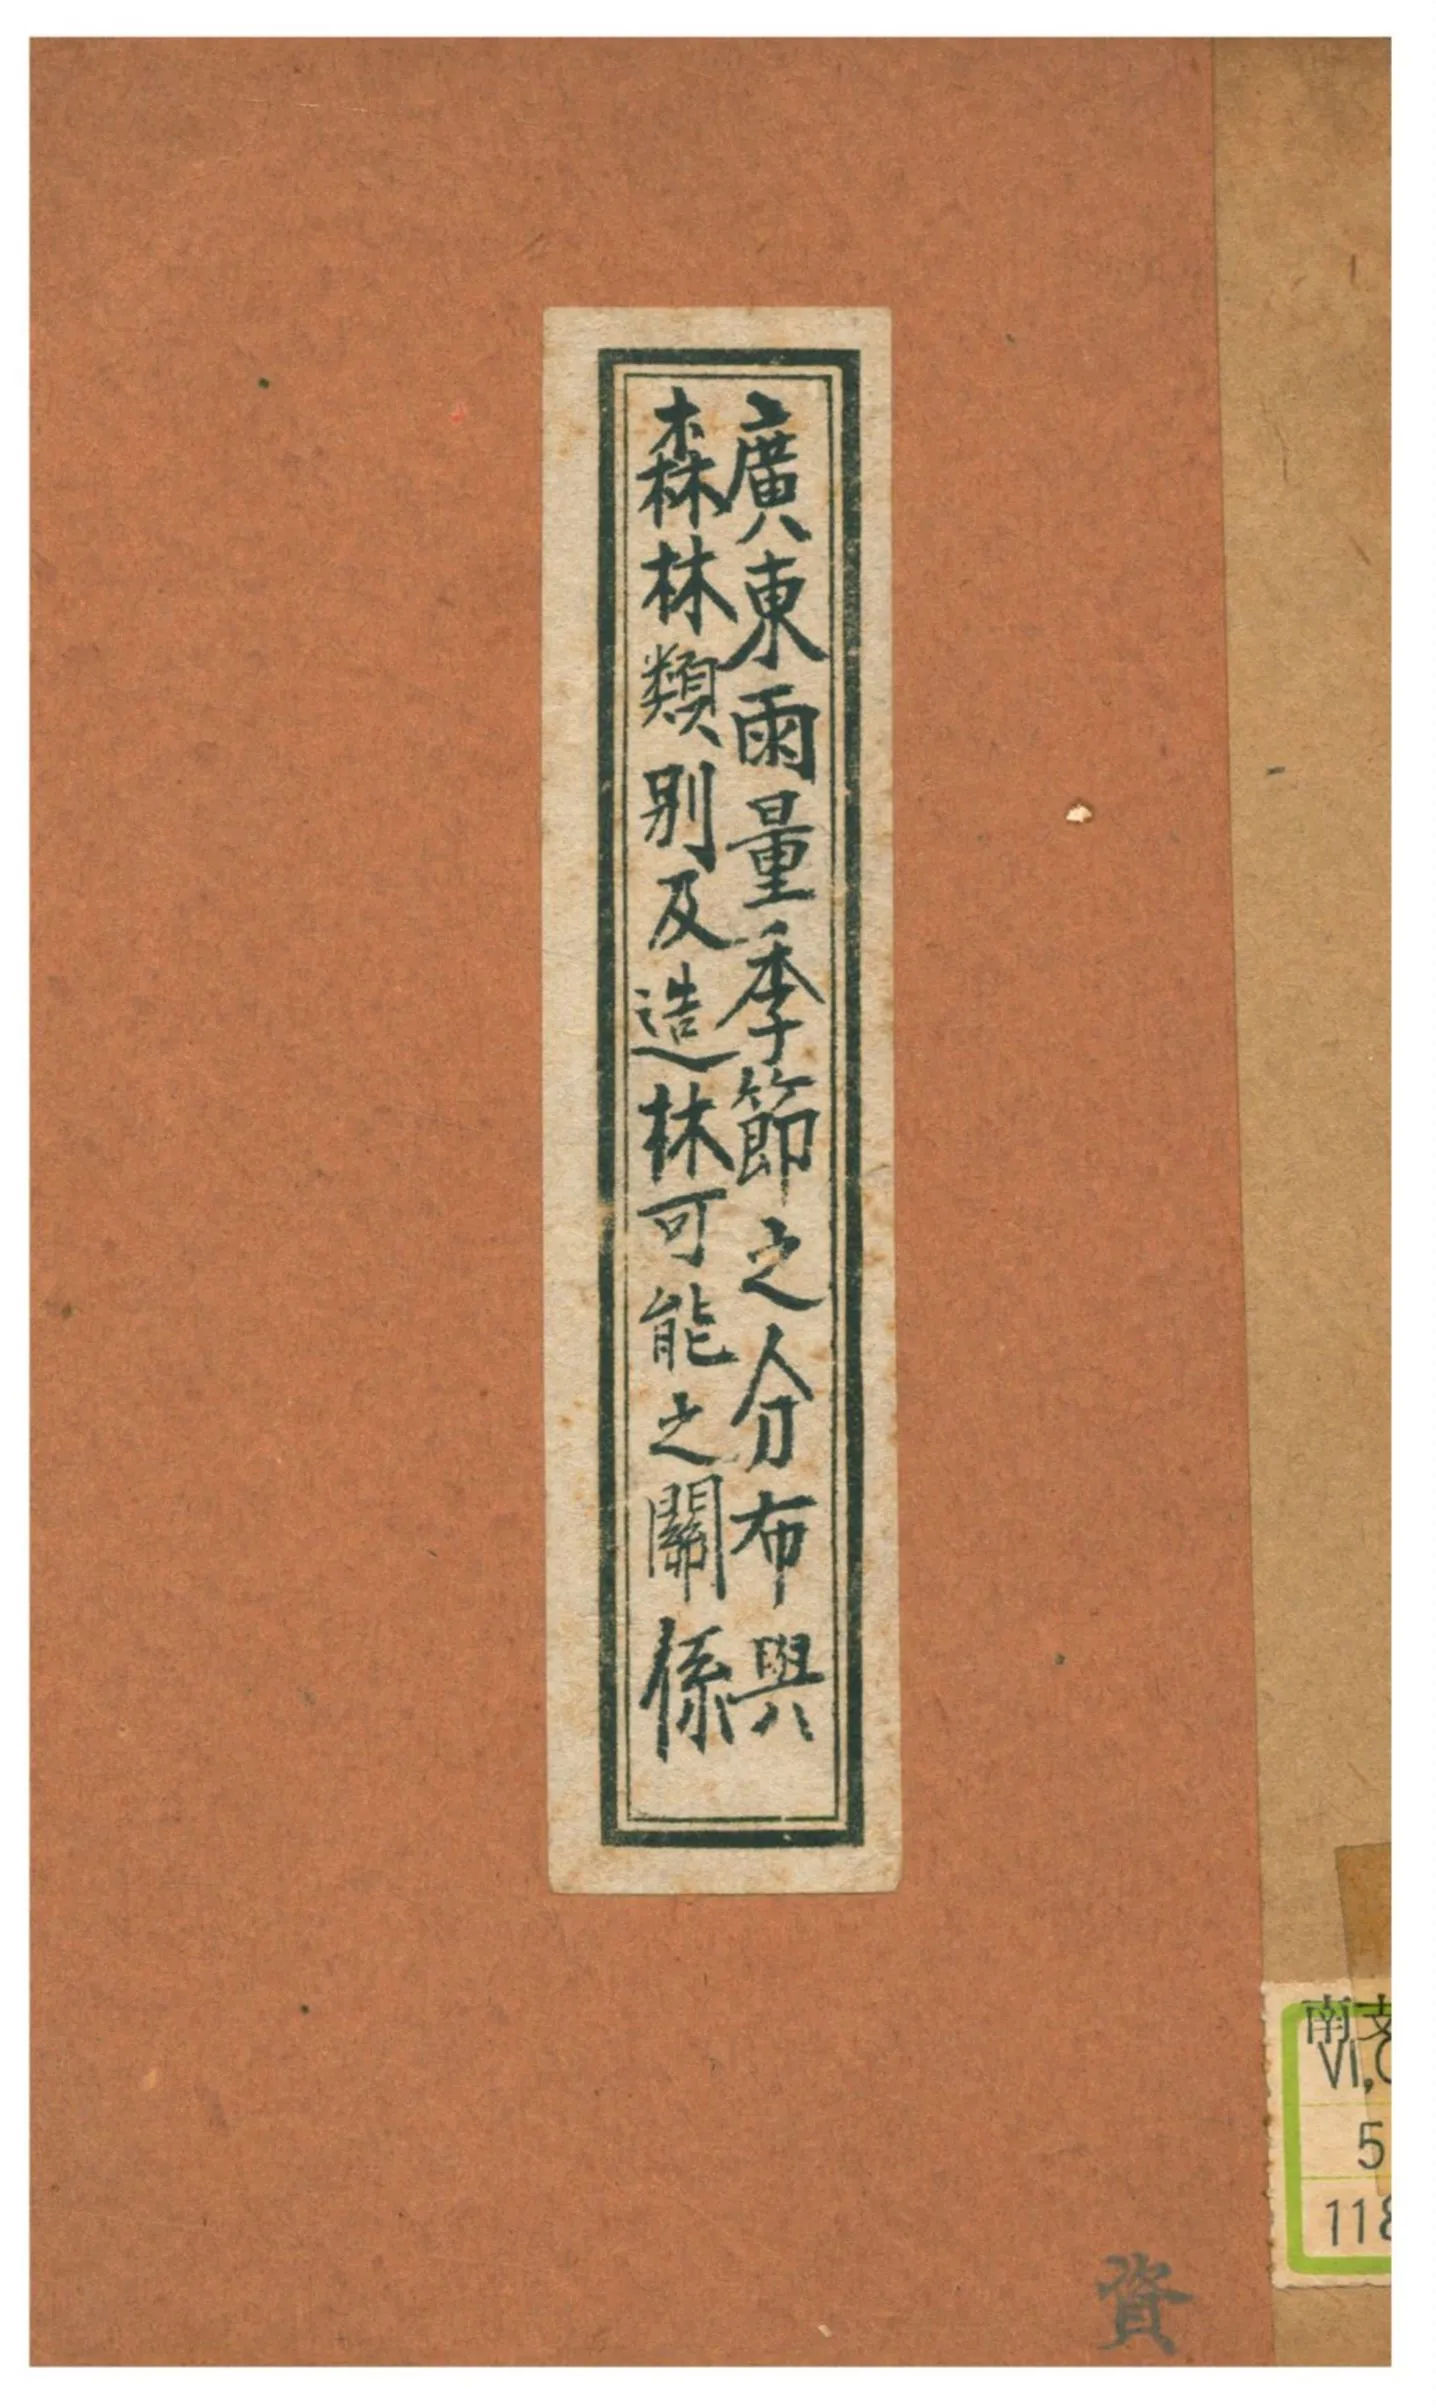 廣東雨量季節之分布與
森林類別及造林可能之關係
南支
VI,
5
118
資